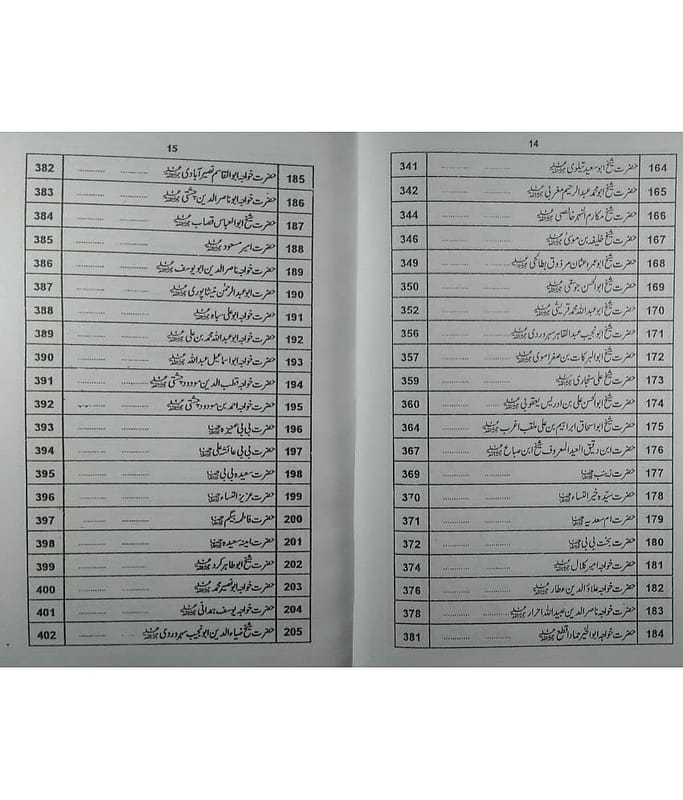 14
164 حضرت شیخ ابو سعید قیلوی رحمۃ اللہ علیہ 341
165 حضرت شیخ ابو محمد عبدالرحیم مغربی رحمۃ اللہ علیہ 342
166 حضرت شیخ مکارم النہر خالصی رحمۃ اللہ علیہ 344
167 حضرت شیخ خلیفہ بن موسیٰ رحمۃ اللہ علیہ 346
168 حضرت شیخ ابو عمر و عثمان مرذوق بطائحی رحمۃ اللہ علیہ 349
169 حضرت شیخ ابو الحسن جوسقی رحمۃ اللہ علیہ 350
170 حضرت شیخ ابو عبداللہ محمد قریشی رحمۃ اللہ علیہ 352
171 حضرت شیخ ابو نجیب عبدالقاہر سہروردی رحمۃ اللہ علیہ 356
172 حضرت شیخ ابو البرکات بن صغر اموی رحمۃ اللہ علیہ 357
173 حضرت شیخ علی سنجاری رحمۃ اللہ علیہ 359
174 حضرت شیخ ابو الحسن علی بن ادریس یعقوبی رحمۃ اللہ علیہ 360
175 حضرت شیخ ابو اسحاق ابراہیم بن علی ملقب اغرب رحمۃ اللہ علیہ 364
176 حضرت ابن دقیق العید المعروف شیخ ابن صباغ رحمۃ اللہ علیہ 367
177 حضرت زینب 369
178 حضرت سیدہ خیر النساء 370
179 حضرت ام سعدیہ 371
180 حضرت بخت بی بی 372
181 حضرت خواجہ امیر کلال رحمۃ اللہ علیہ 374
182 حضرت خواجہ علاؤ الدین عطار رحمۃ اللہ علیہ 376
183 حضرت خواجہ ناصر الدین عبیداللہ احرار رحمۃ اللہ علیہ 378
184 حضرت خواجہ ابو الخیر حماد اقطع رحمۃ اللہ علیہ 381
15
185 حضرت خواجہ ابو القاسم نصیر آبادی رحمۃ اللہ علیہ 382
186 حضرت خواجہ ابو ناصر الدین چشتی رحمۃ اللہ علیہ 383
187 حضرت شیخ ابو العباس قصاب رحمۃ اللہ علیہ 384
188 حضرت امیر مسعود رحمۃ اللہ علیہ 385
189 حضرت خواجہ ناصر الدین ابو یوسف رحمۃ اللہ علیہ 386
190 حضرت ابو عبدالرحمٰن نیشاپوری رحمۃ اللہ علیہ 387
191 حضرت خواجہ ابو علی سیاہ رحمۃ اللہ علیہ 388
192 حضرت خواجہ ابو عبداللہ محمد بن علی رحمۃ اللہ علیہ 389
193 حضرت خواجہ ابو اسماعیل عبداللہ رحمۃ اللہ علیہ 390
194 حضرت خواجہ قطب الدین مودود چشتی رحمۃ اللہ علیہ 391
195 حضرت خواجہ احمد بن مودود چشتی رحمۃ اللہ علیہ 392
196 حضرت بی بی 393
197 حضرت بی بی عائشہ علی 394
198 حضرت سعیدہ بی بی 395
199 حضرت عزیز النساء 396
200 حضرت فاطمہ بیگم 397
201 حضرت امینہ سعیدہ 398
202 حضرت خواجہ ابو طاہر کرد رحمۃ اللہ علیہ 399
203 حضرت خواجہ ابو نصیر محمد رحمۃ اللہ علیہ 400
204 حضرت خواجہ یوسف ہمدانی رحمۃ اللہ علیہ 401
205 حضرت شیخ ضیاء الدین ابو نجیب سہروردی رحمۃ اللہ علیہ 402